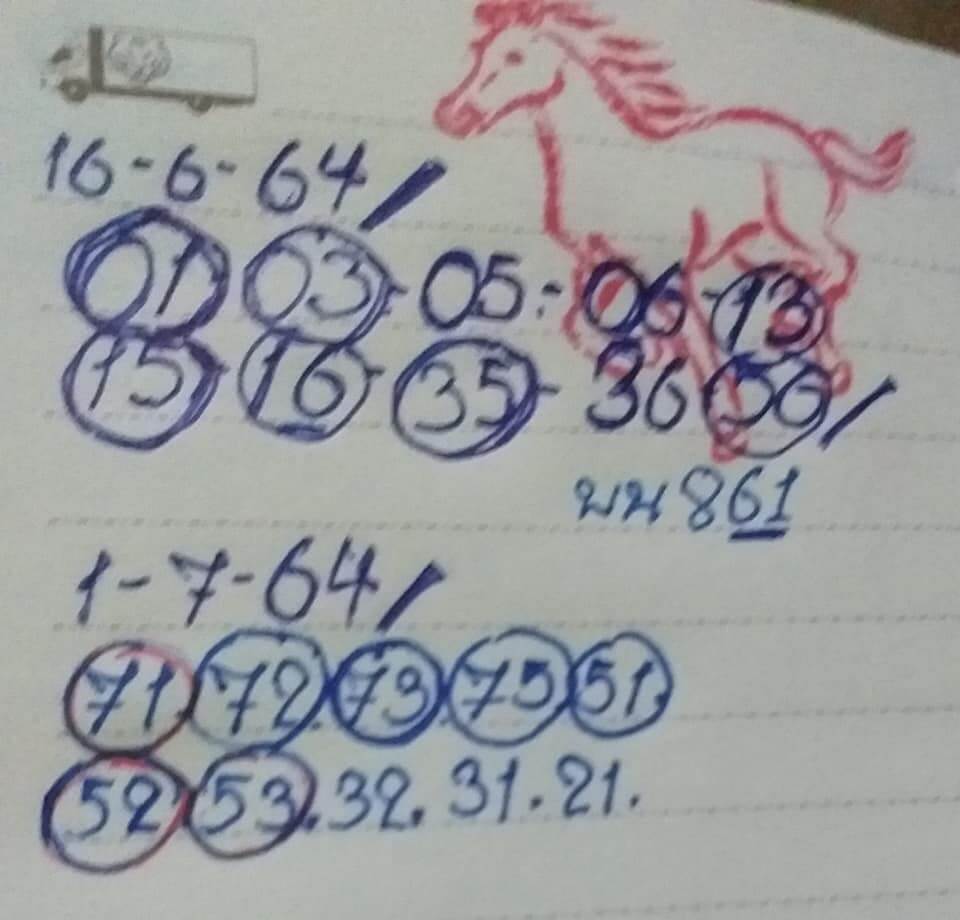 16-6-64/
01 03-05-06-13
15-16-35-36 56/
บน 861
1-7-64/
71 72 73 75 51.
52 53.32.31.21.